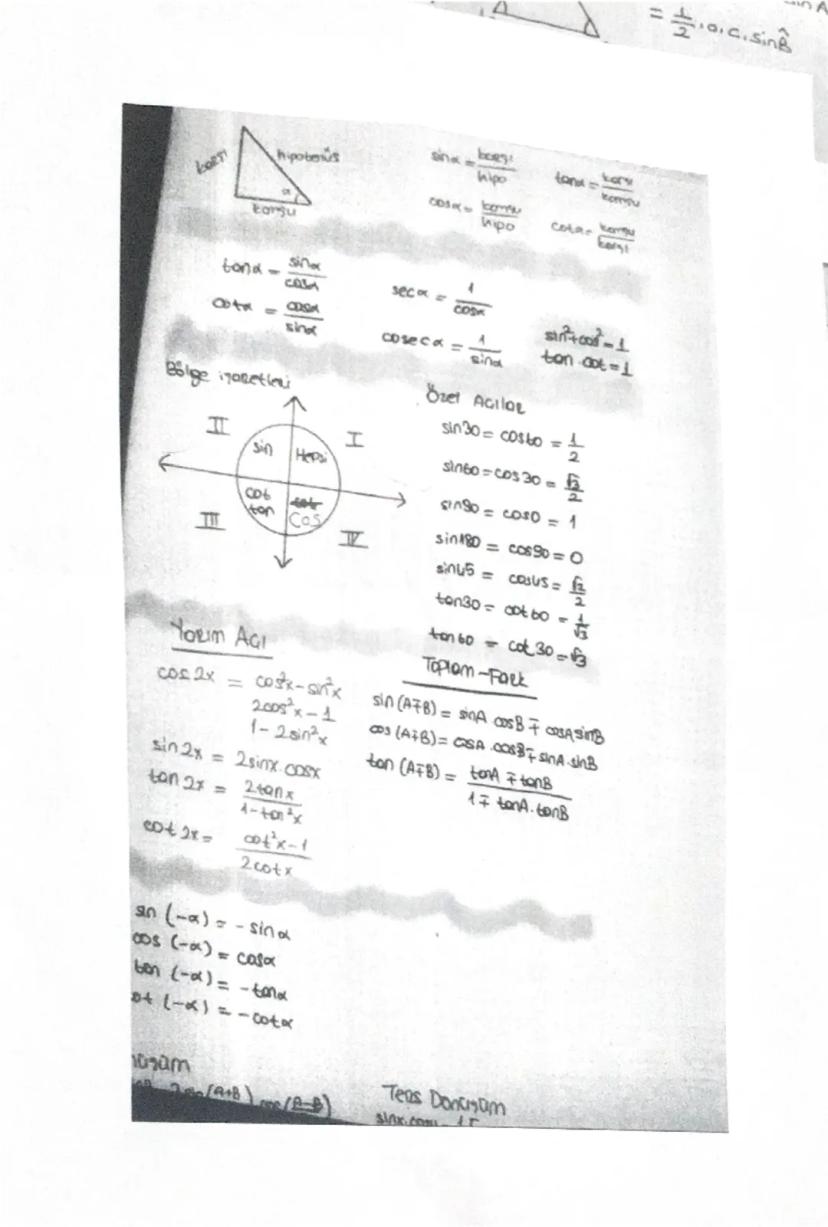 = 1/2 . a. c. sinB̂
karşı
hipotenüs
α
komşu
sinα = karşı/hipo
tanα = karşı/komşu
cosα = komşu/hipo
cotα = komşu/karşı
tanα = sinα/cosα
cotα = cosα/sinα
secα = 1/cosα
cosecα = 1/sinα
sin²+cos²=1
tan cot=1
Bölge işaretleri
II
I
sin
Hepsi
cot
tan
Cos
III
IV
Özel Açılar
sin30 = cos60 = 1/2
sin60 = cos30 = √3/2
sin90 = cos0 = 1
sin180 = cos90 = 0
sin45 = cos45 = √2/2
tan30 = cot60 = 1/√3
tan60 = cot30 = √3
Yarım Açı
cos2x = cos²x-sin²x
2cos²x-1
1-2sin²x
sin2x = 2sinx.cosx
tan2x = 2tanx/1-tan²x
cot2x = cot²x-1/2cotx
Toplam-Fark
sin(A∓B) = sinA cosB ∓ cosA sinB
cos(A∓B) = cosA.cosB ∓ sinA.sinB
tan(A∓B) = tanA ∓ tanB/1∓ tanA.tanB
sin(-α) = -sinα
cos(-α) = cosα
tan(-α) = -tanα
ot(-α) = -cotα
Ters Dönüşüm